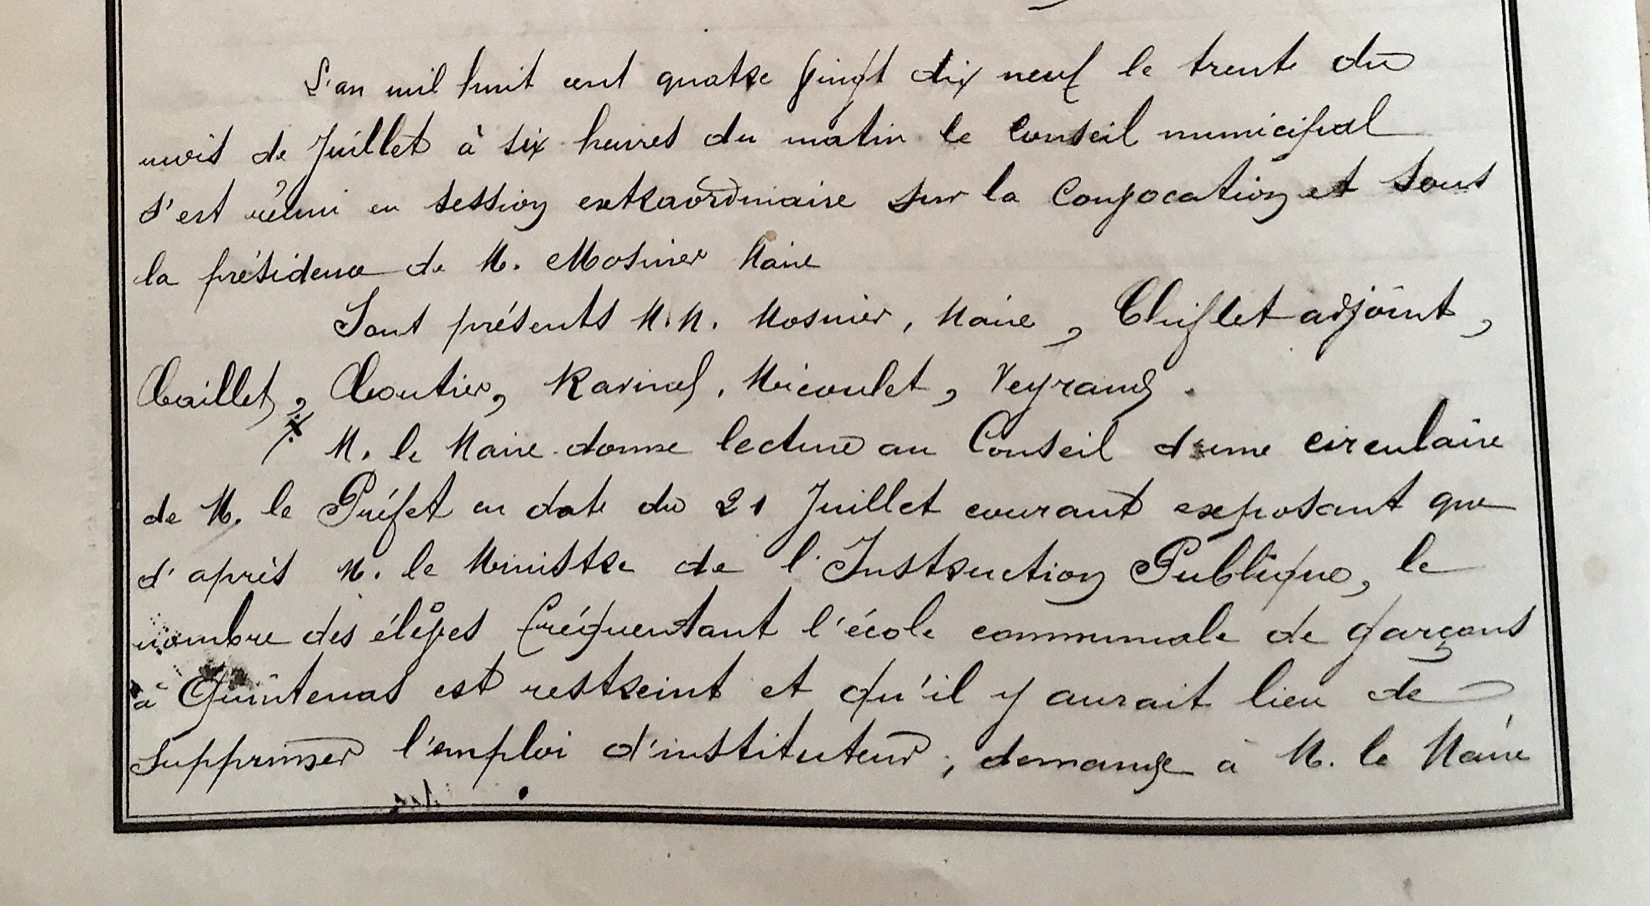 L'an mil huit cent quatre vingt dix neuf le trente du
mois de Juillet à six heures du matin le Conseil municipal
s'est réuni en session extraordinaire sur la convocation et sous
la présidence de M. Mosnier Maire
Sont présents M.M. Mosnier, Maire, Chiflet adjoint,
Caillet, Coutier, Ravinel, Micoulet, Veyrand.
M. le Maire donne lecture au Conseil d'une circulaire
de M. le Préfet en date du 21 Juillet courant exposant que
d'après M. le Ministre de l'Instruction Publique, le
nombre des élèves fréquentant l'école communale de garçons
à Quintenas est restreint et qu'il y aurait lieu de
supprimer l'emploi d'instituteur, demande à M. le Maire